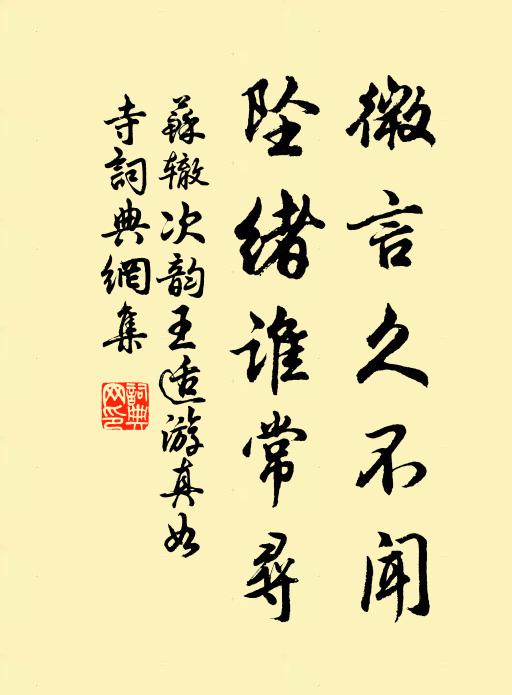 微言久不闻
坠绪谁常寻
苏辙次韵王适游真如
寺词典网集
词典网印